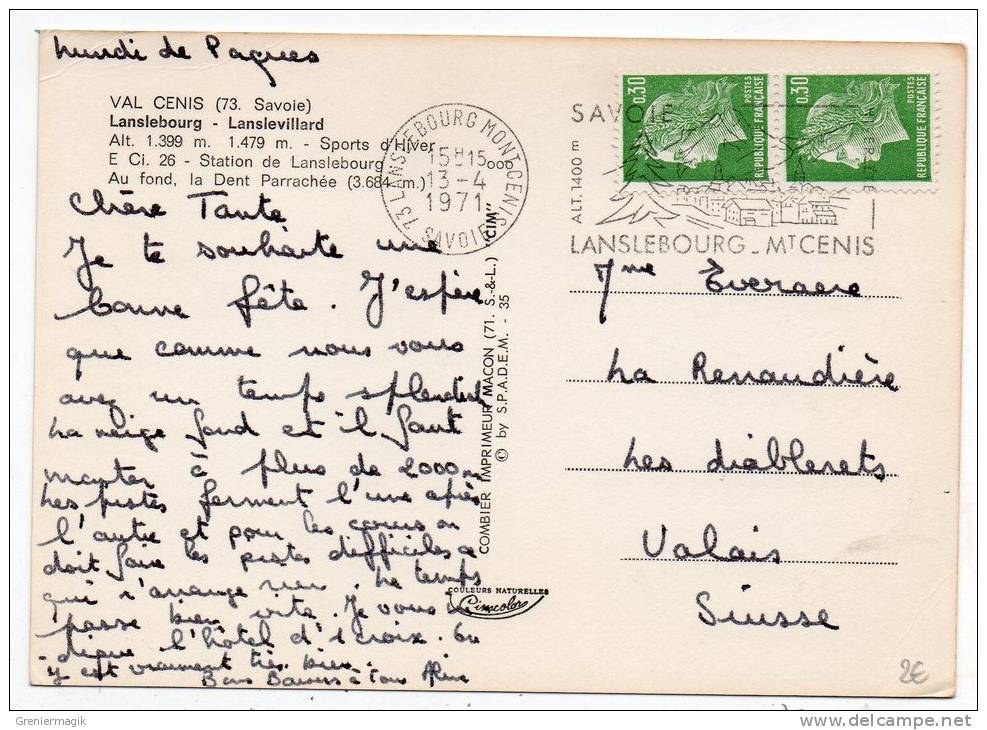 Lundi de Paques
VAL CENIS (73. Savoie)
Lanslebourg - Lanslevillard
Alt. 1.399 m. 1.479 m. - Sports d'Hiver
E Ci. 26 - Station de Lanslebourg
Au fond, la Dent Parrachée (3.684 m.)
73 LANSLEBOURG MONT-CENIS
15H15
13-4
1971
SAVOIE
SAVOIE
ALT. 1400 m
LANSLEBOURG_MT CENIS
0,30
POSTES
REPUBLIQUE FRANÇAISE
0,30
POSTES
REPUBLIQUE FRANÇAISE
Chère Tante
Je te souhaite une
bonne fête. J'espère
que comme nous vous
avez un temps splendide
La neige fond et il faut
monter à plus de 2000m
Les pistes ferment l'une après
l'autre et pour les cours on
doit faire les pistes difficiles ce
qui n'arrange rien. Le temps
passe bien vite. Je vous
l'hôtel d'
y est vraiment très bien.
Bons Baisers à tous
COMBIER IMPRIMEUR MACON (71. S.-&-L.) "CIM"
© by S.P.A.D.E.M. - 35
COULEURS NATURELLES
Cimcolor
Mme Everaere
La Renaudière
Les diablerets
Valais
Suisse
2€
Greniermagik
www.delcampe.net